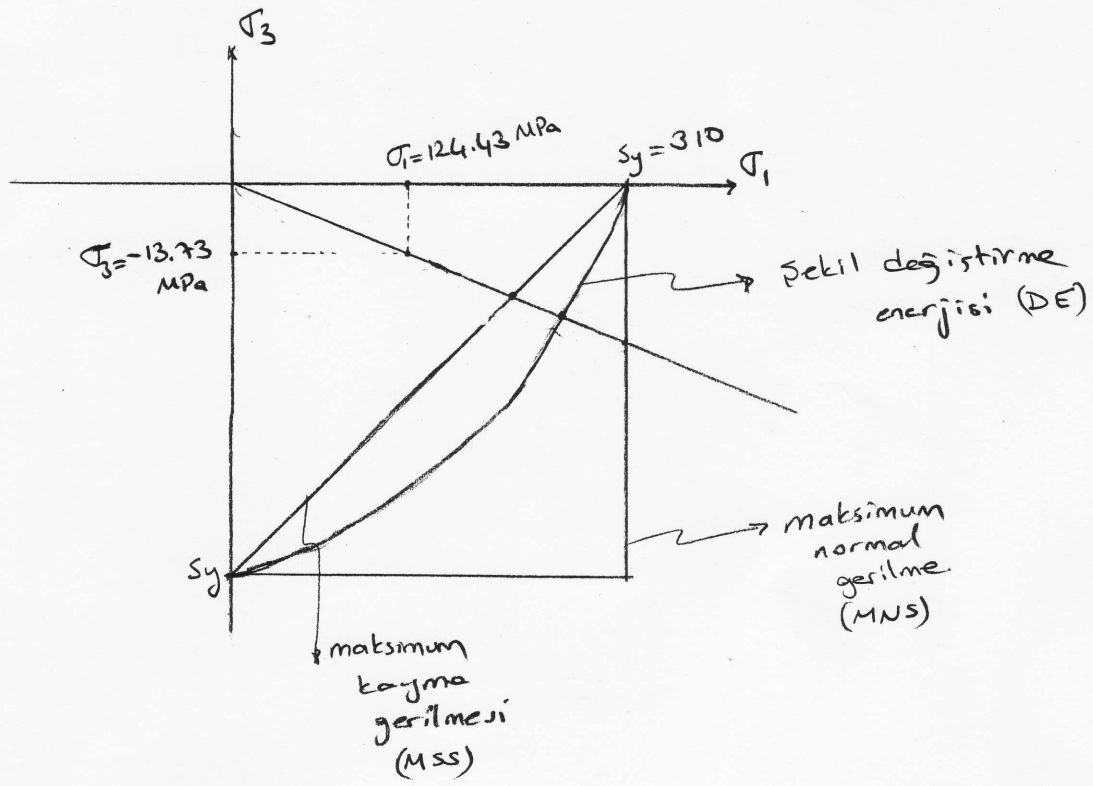 σ₃
σ₁=124.43 MPa
Sy=310
σ₁
σ₃=-13.73
MPa
Şekil değiştirme
enerjisi (DE)
maksimum
normal
gerilme.
(MNS)
Sy
maksimum
kayma
gerilmesi
(MSS)